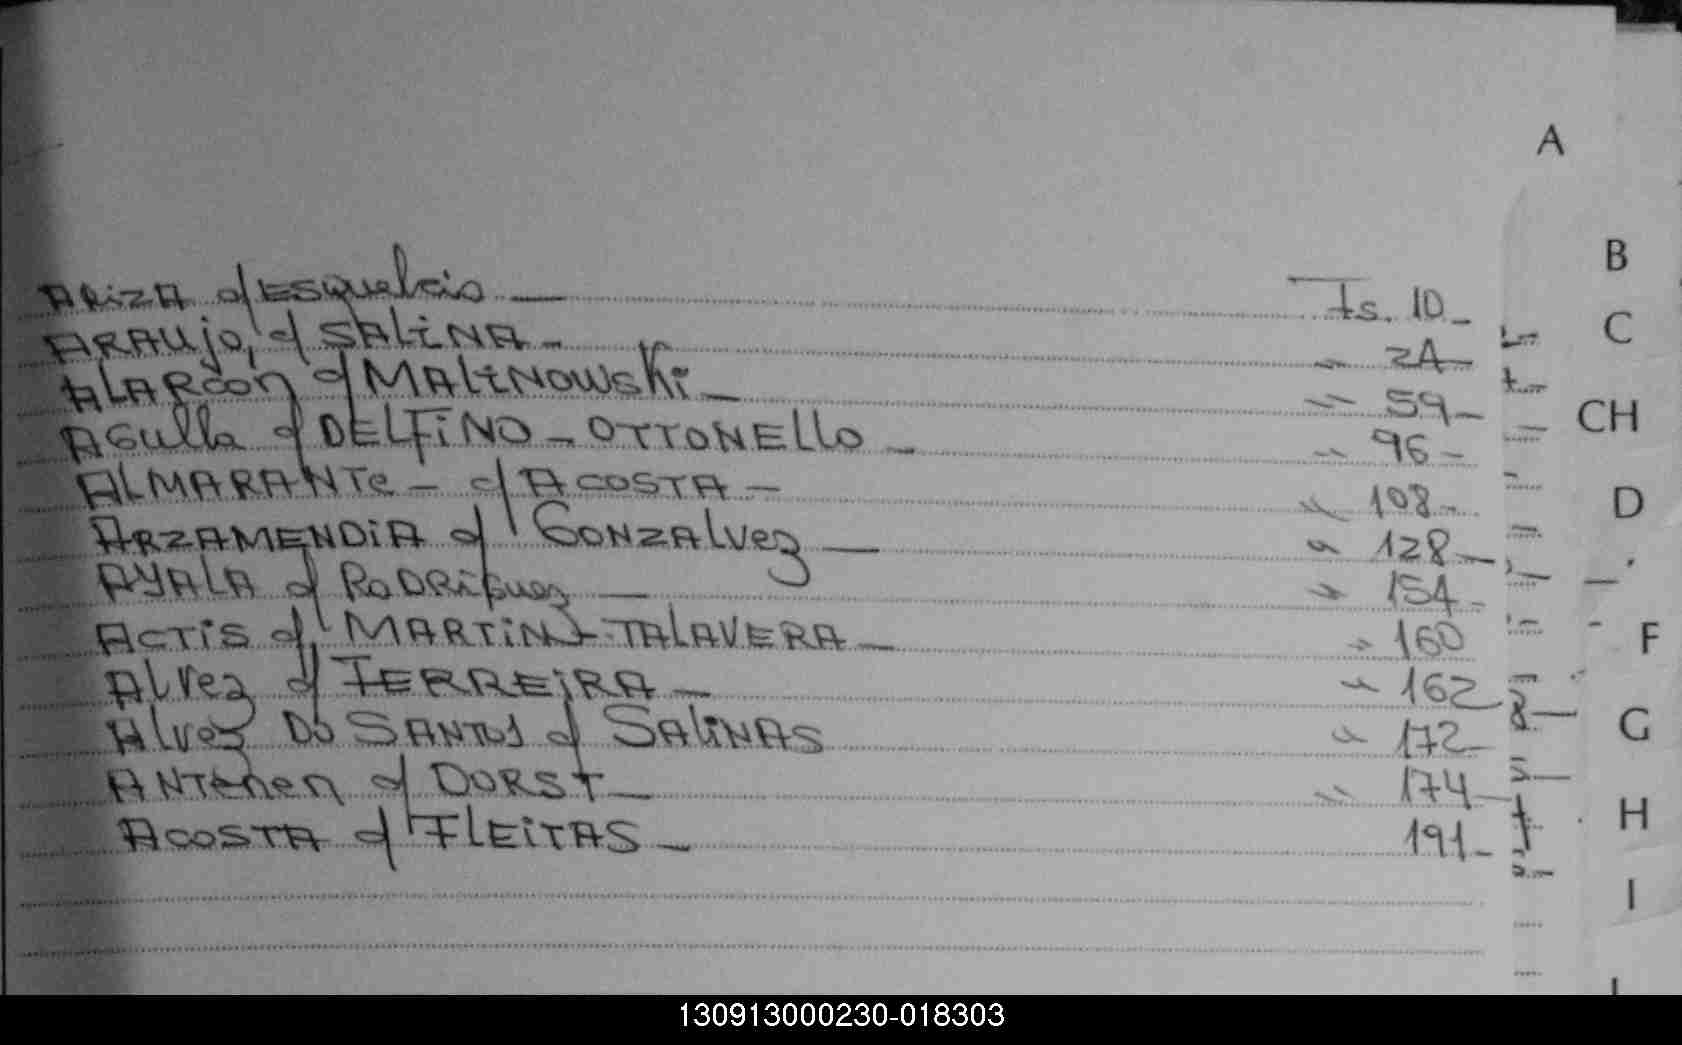 A
ARIZA c/ Esquelcio — Fs. 10 -
ARAUJO, c/ SALINA - " 24 -
ALARCON c/ MALINOWSKI - " 59 -
AGULLA c/ DELFINO - OTTONELLO - " 96 -
ALMARANTE - c/ ACOSTA - " 108 -
ARZAMENDIA c/ GONZALVEZ — " 128 -
AYALA c/ RODRIGUEZ — " 154 -
ACTIS c/ MARTIN Y TALAVERA - " 160
ALVEZ c/ FERREIRA - " 162
ALVEZ DO SANTOS c/ SALINAS " 172 -
ANTENEN c/ DORST - " 174 -
ACOSTA c/ FLEITAS - 191 -
B
C
CH
D
F
G
H
I
130913000230-018303